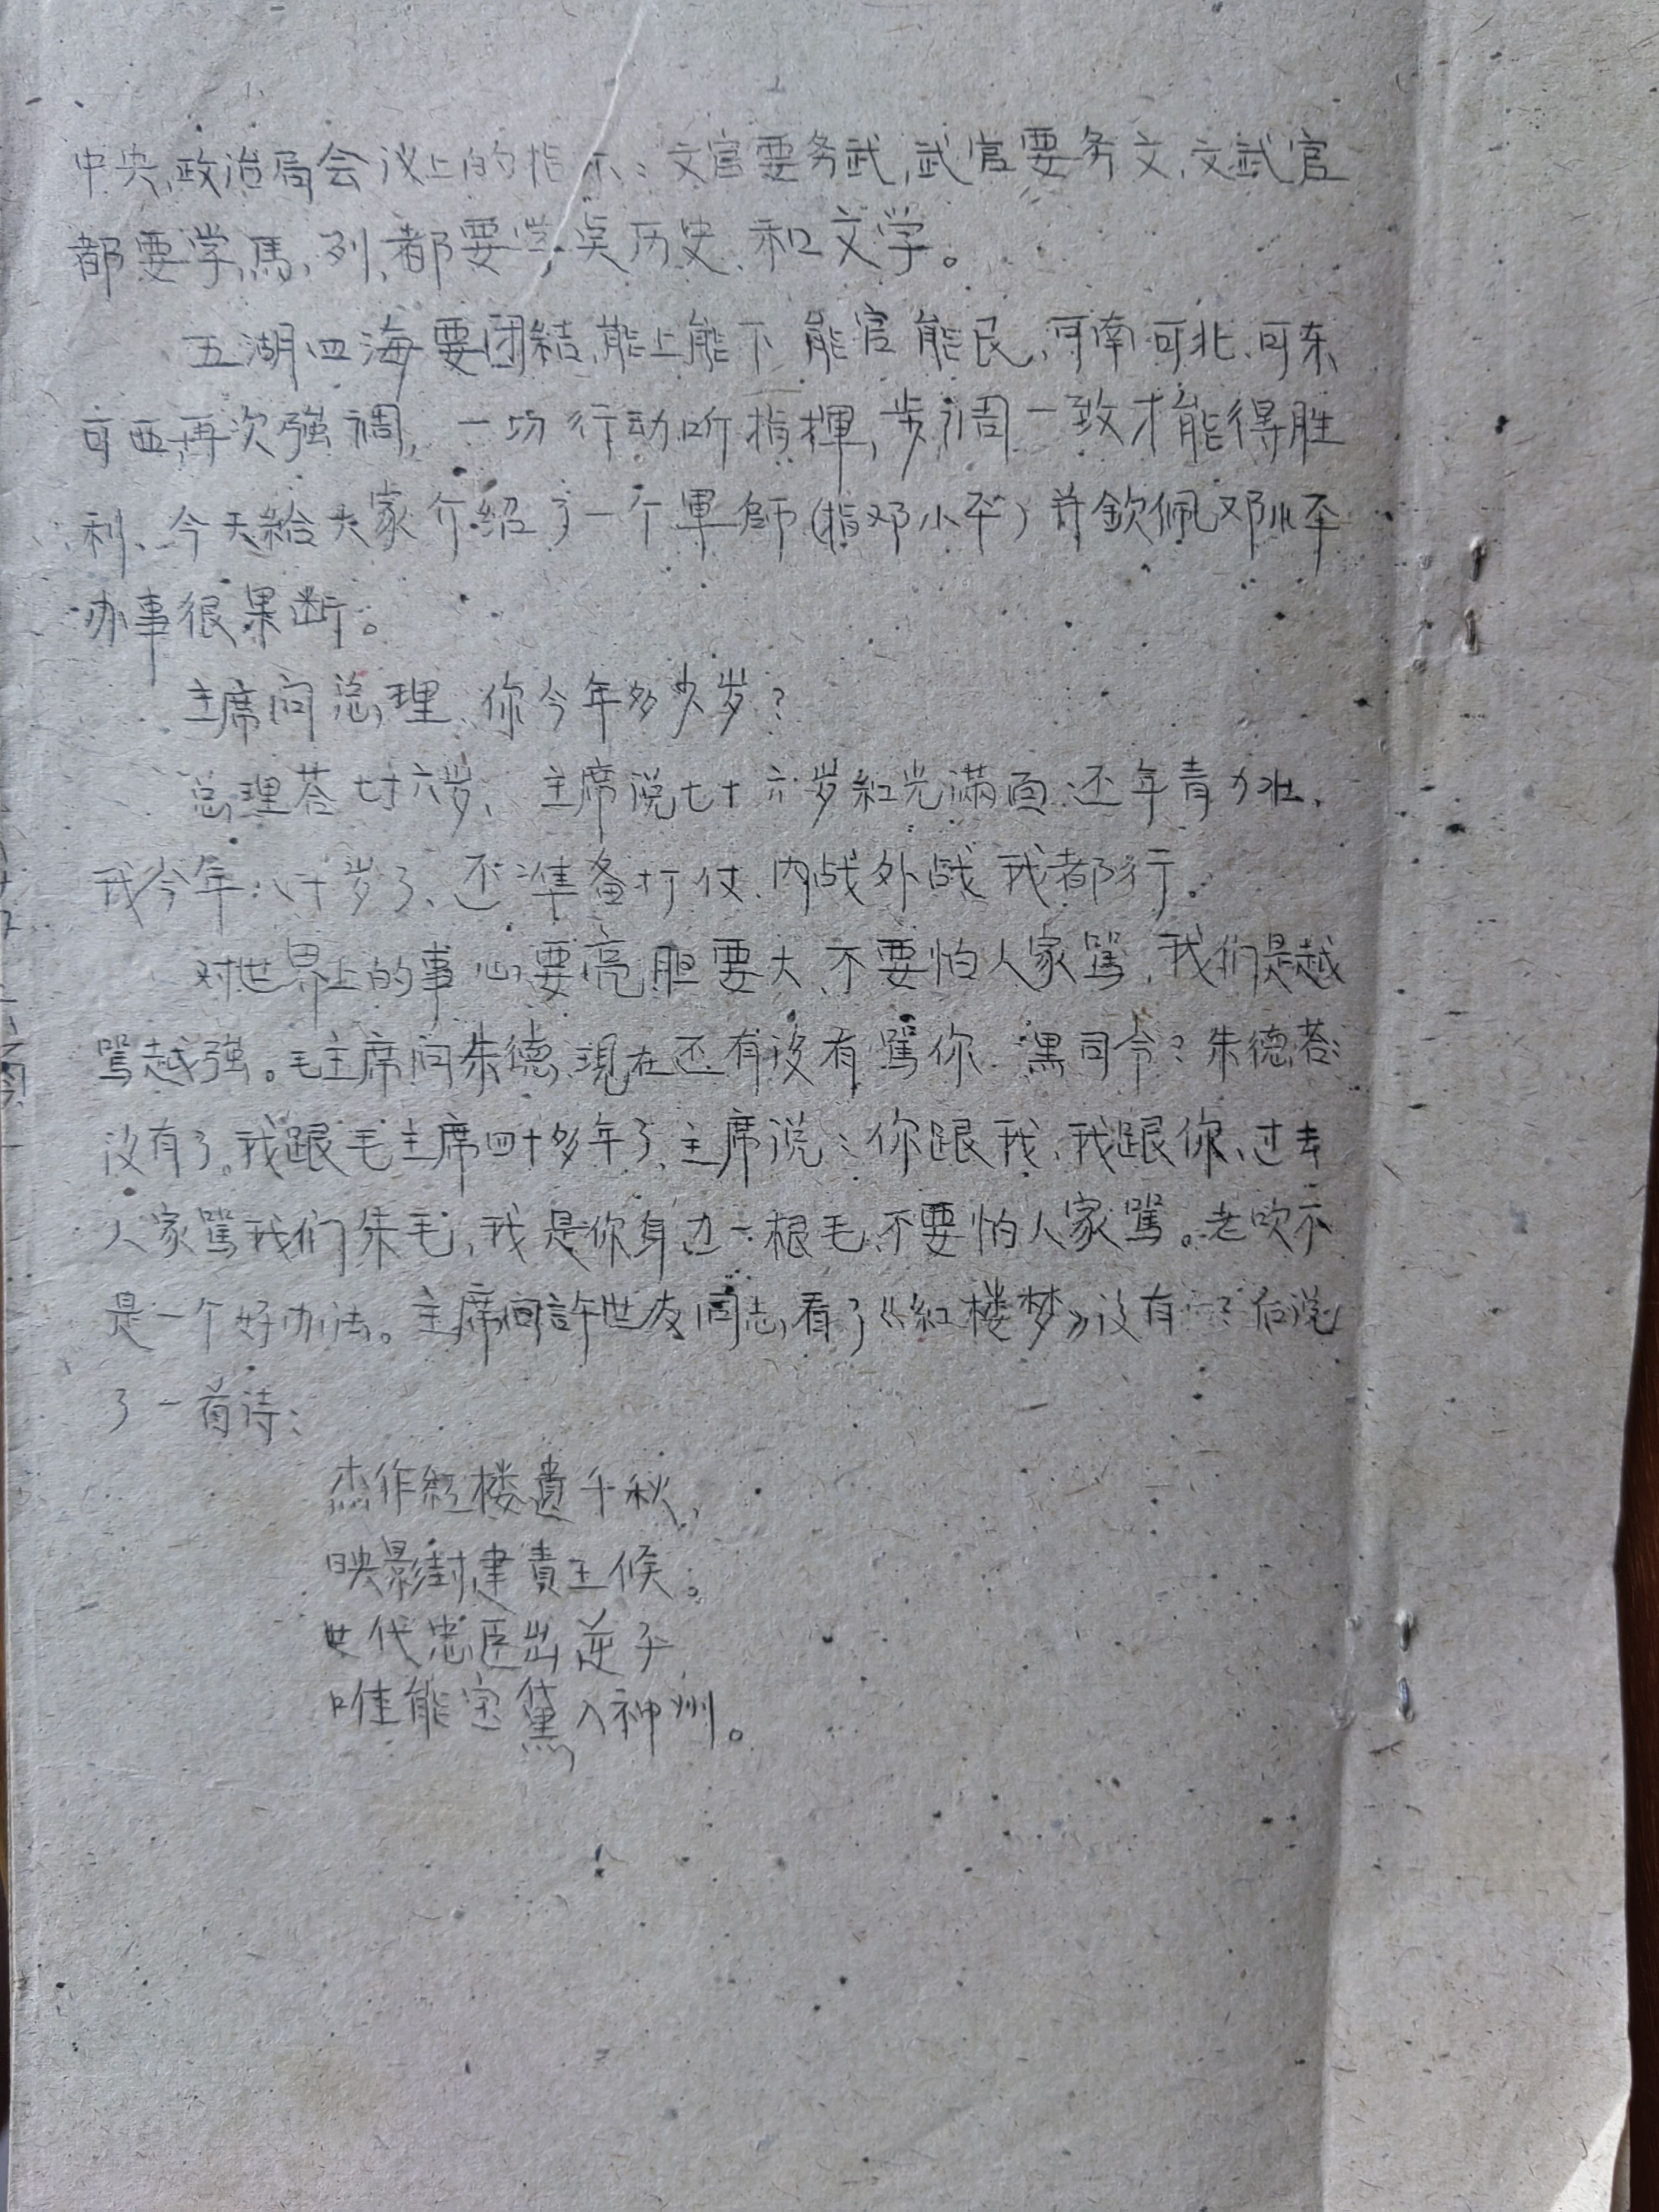 中央政治局会议上的指示：文官要务武，武官要务文，文武官
都要学馬，列，都要学点历史、和文学。
五湖四海要团結，能上能下 能官能民，可南可北、可东
可西，再次强调，一切行动听指揮，步调一致才能得胜
利、今天給大家介绍了一个軍師（指邓小平）并欽佩邓小平
办事很果断。
主席问总理、你今年多少岁？
总理荅七十六岁、主席说七十六岁紅光滿面 还年青力壮，
我今年八十岁了、还準备打仗、内战外战 我都行。
对世界上的事 心要亮 胆要大、不要怕人家駡，我们是越
駡越强。毛主席问朱德、現在还有没有駡你 黑司令？朱德荅：
没有了。我跟毛主席四十多年了、主席说：你跟我、我跟你、过去
人家駡我们朱毛，我是你身边一根毛、不要怕人家駡。老吹不
是一个好办法。主席问許世友同志，看了《紅楼梦》没有？后说
了一首诗：
杰作紅楼遺千秋，
映影封建責王候。
世代忠臣出逆子
唯能宝黛入神州。